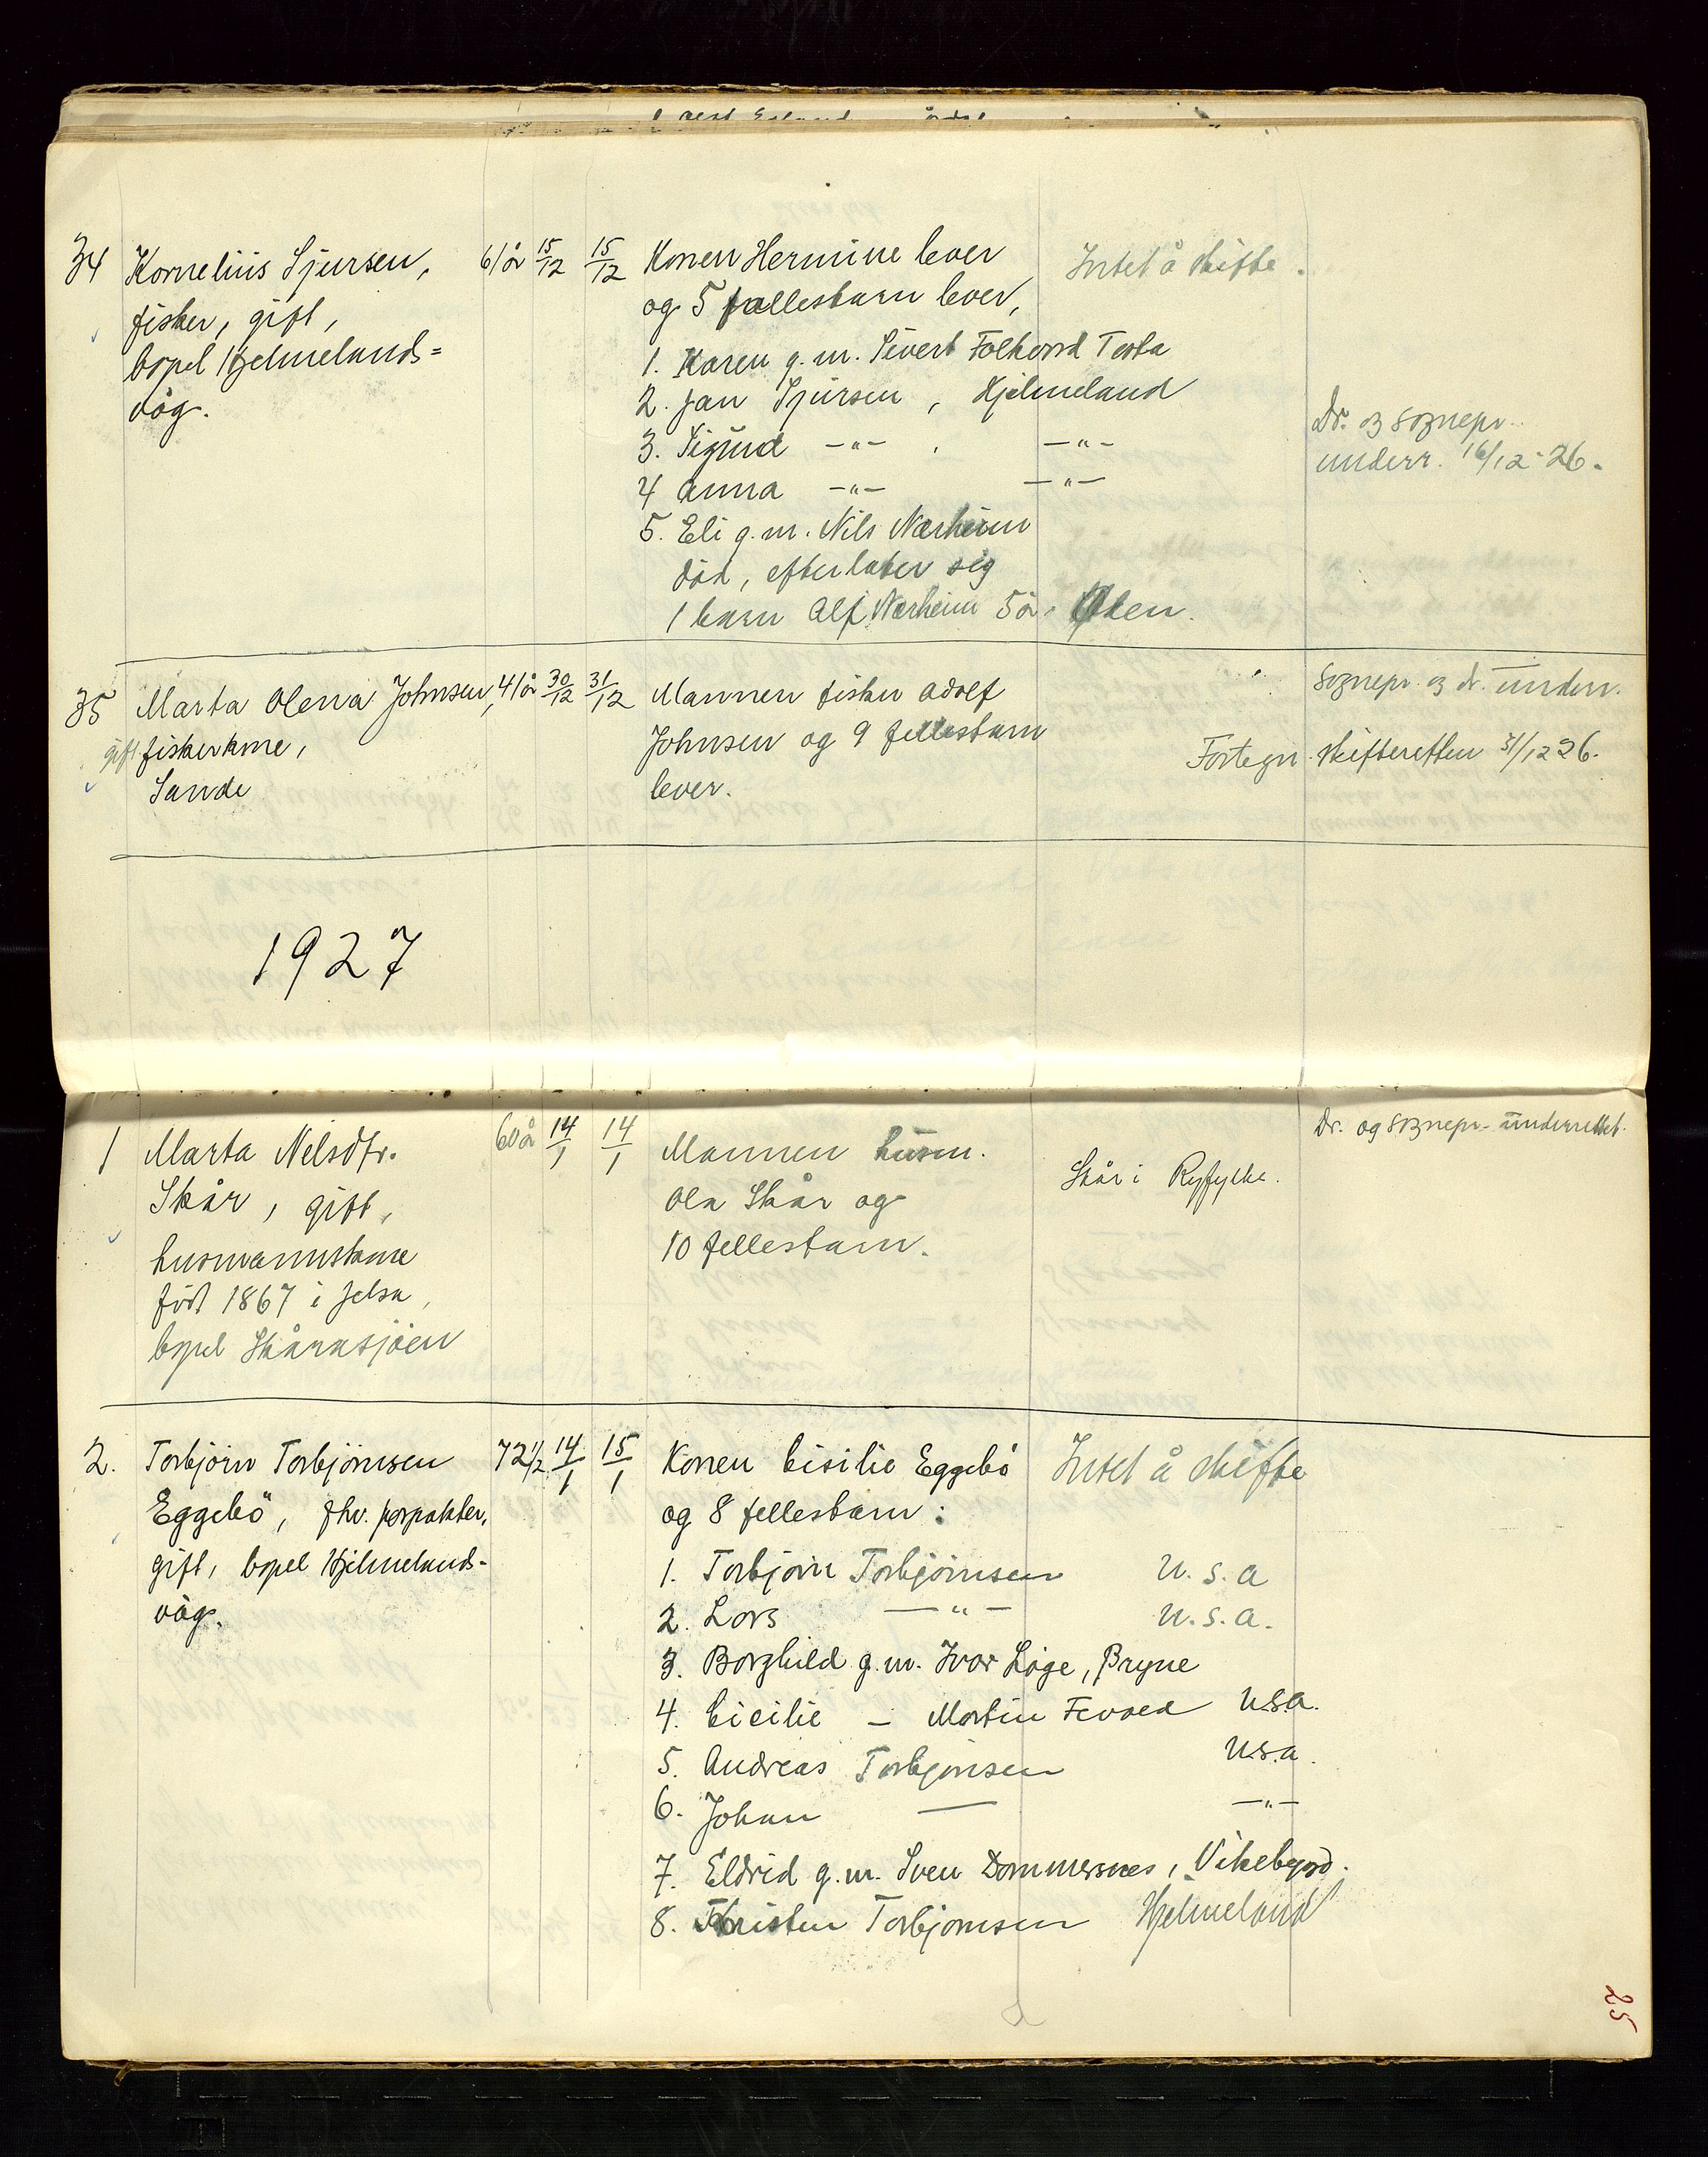 34 Kornelius Sjursen, 61 år 15/12 15/12 Konen Hermine lever Intet å skifte.
fisker, gift, og 5 fællesbarn lever,
bopel Hjelmelands= 1. Karen g.m. Sivert Folkvord Tasta
våg. 2. Jan Sjursen, Hjelmeland
3. Sigurd -"- , -"-
Dr. og sognepr.
underr. 16/12-26.
4 Anna -"- -"-
5. Eli g.m. Nils Nærheim
död, efterlater sig
1 barn Alf Nærheim 5 år,
35 Marta Olena Johnsen, 41 år 30/12 31/12 Mannen fisker Adolf Sognepr. og dr. underr.
gift fiskerkone, Johnsen og 9 fellesbarn Fortegn. skifteretten 31/12 26.
Sande lever.
1927
1 Marta Nilsdtr. 60 år 14/1 14/1 Mannen husm. Skår i Ryfylke. Dr. og sognepr. underrettet.
Skår, gift, Ola Skår og
husmannskone 10 fellesbarn.
födt 1867 i Jelsa,
bopel Skårasjöen
2. Torbjörn Torbjörnsen 72 1/2 14/1 15/1 Konen Cisilie Eggebö Intet å skifte
Eggebö, fhv. forpakter, og 8 fellesbarn:
gift, bopel Hjelmelands- 1. Torbjörn Torbjörnsen U.S.A
våg. 2. Lars -"- U.S.A.
3. Borghild g.m. Ivar Löge, Bryne
4. Cicilie - Martin U.S.A.
5. Andreas Torbjörnsen U.S.A.
6. Johan — -"-
7. Eldrid g.m. Sven Dommersnes, Vikebygd.
8. Kristen Torbjörnsen Hjelmeland
25